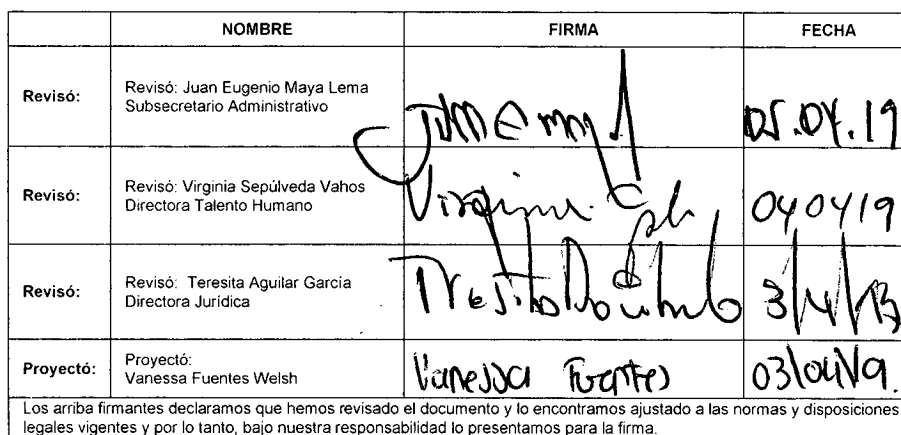 NOMBRE FIRMA FECHA
Revisó: Revisó: Juan Eugenio Maya Lema
Subsecretario Administrativo
05.04.19
Revisó: Revisó: Virginia Sepúlveda Vahos
Directora Talento Humano
Virginia
040419
Revisó: Revisó: Teresita Aguilar García
Directora Jurídica
3/4/19
Proyectó: Proyectó:
Vanessa Fuentes Welsh
Vanessa Fuentes 03/04/19.
Los arriba firmantes declaramos que hemos revisado el documento y lo encontramos ajustado a las normas y disposiciones
legales vigentes y por lo tanto, bajo nuestra responsabilidad lo presentamos para la firma.